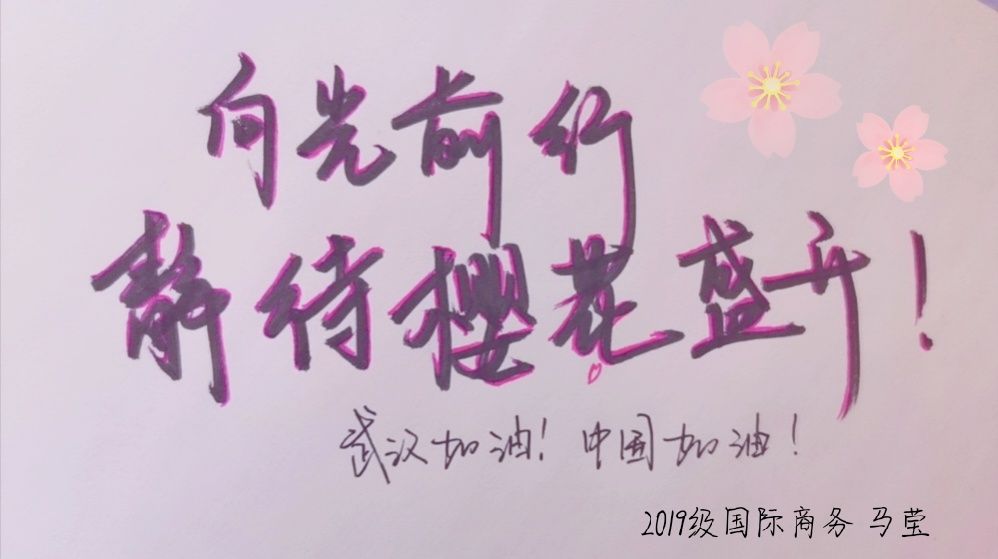 向光前行
静待樱花盛开!
武汉加油! 中国加油!
2019级国际商务 马莹